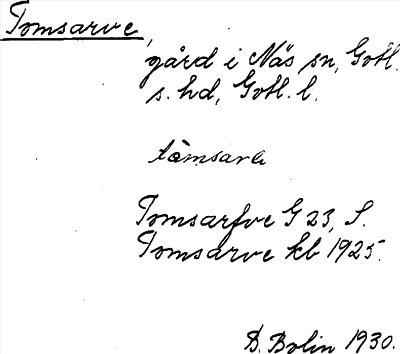 Tomsarve,
gård i Näs sn, Gotl.
s. hd, Gotl. l.
tòmsarvε
Tomsarfve G 23, S.
Tomsarve kb 1925.
D. Bolin 1930.